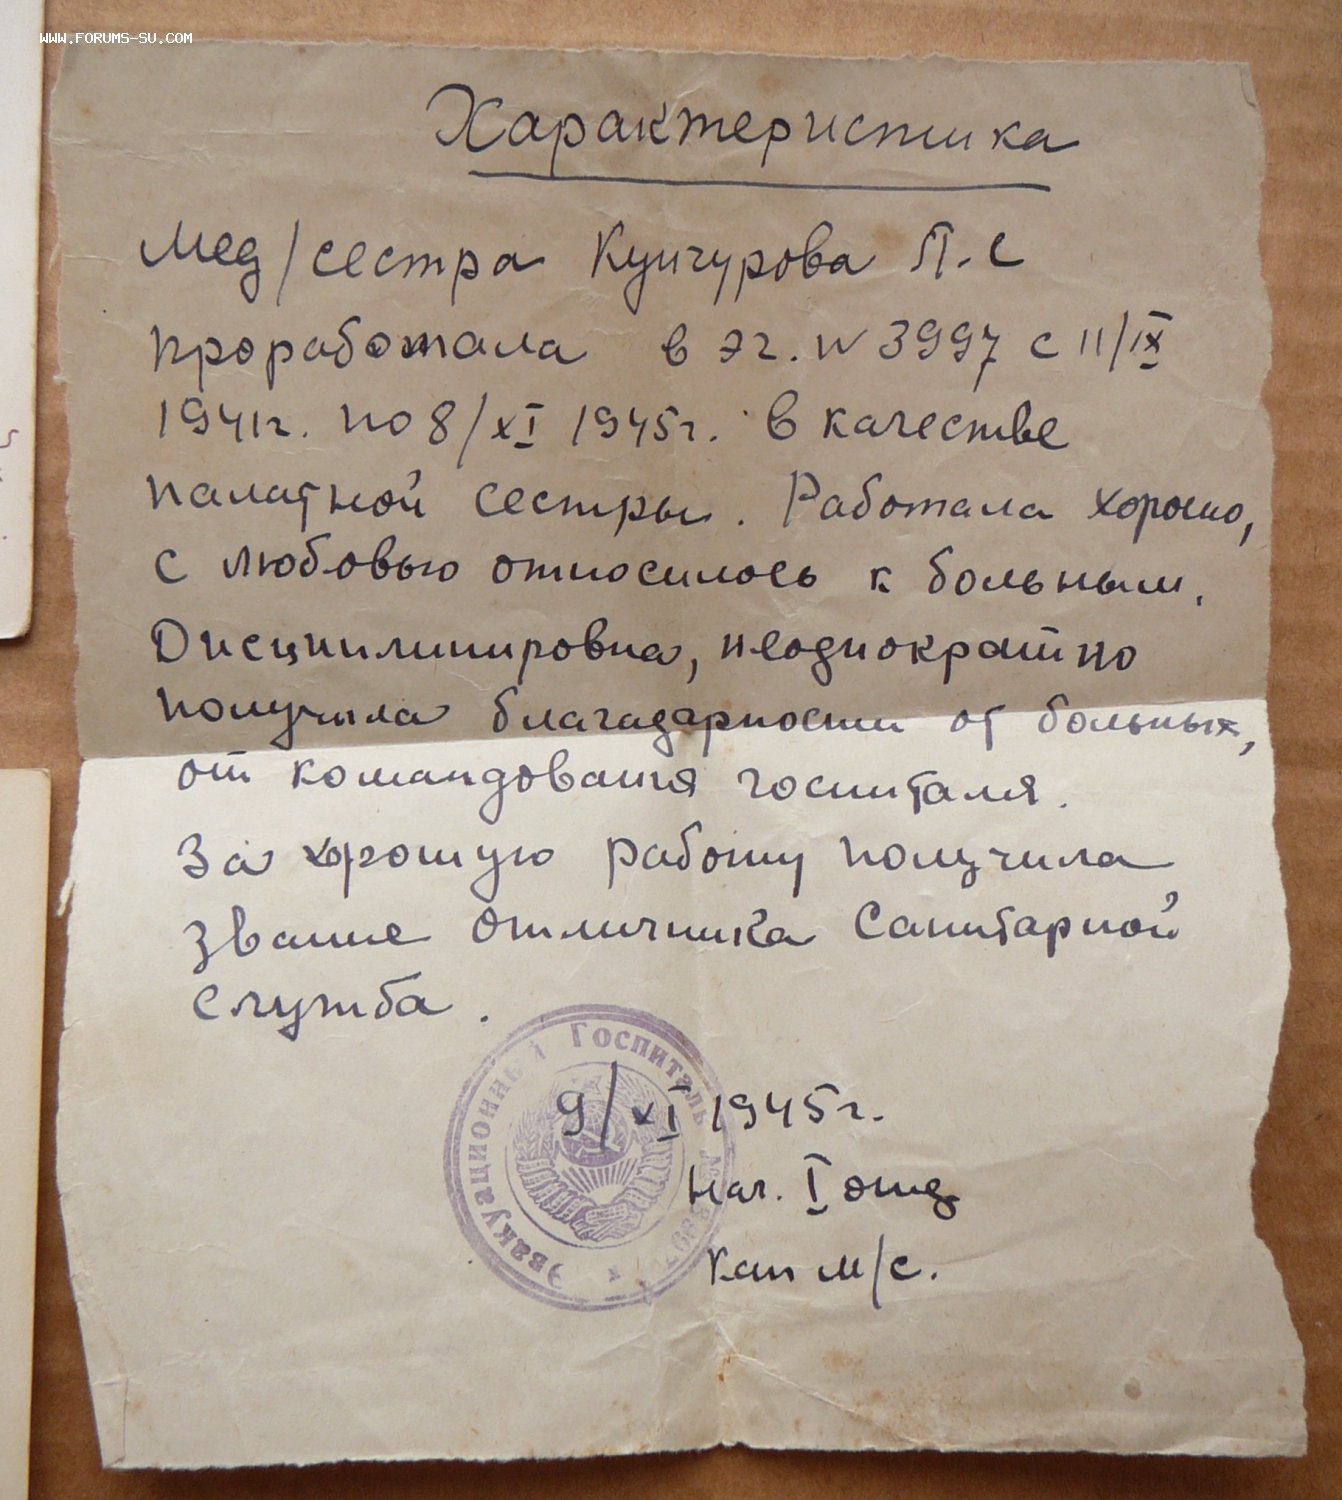 WWW.FORUMS-SU.COM
Характеристика
Мед/сестра Кунчурова П.С
проработала в эг. N 3997 с 11/IX
1941г. по 8/XI 1945г. в качестве
палатной сестры. Работала хорошо,
с любовью относилось к больным.
Дисциплинировна, неоднократно
получыла благадарности от больных,
от командования госпиталя.
За хорошую работу получила
звание отличника Санитарной
служба.
Эвакуационный Госпиталь № 3997
9/XI 1945г.
Нач. I отд
кап м/с.